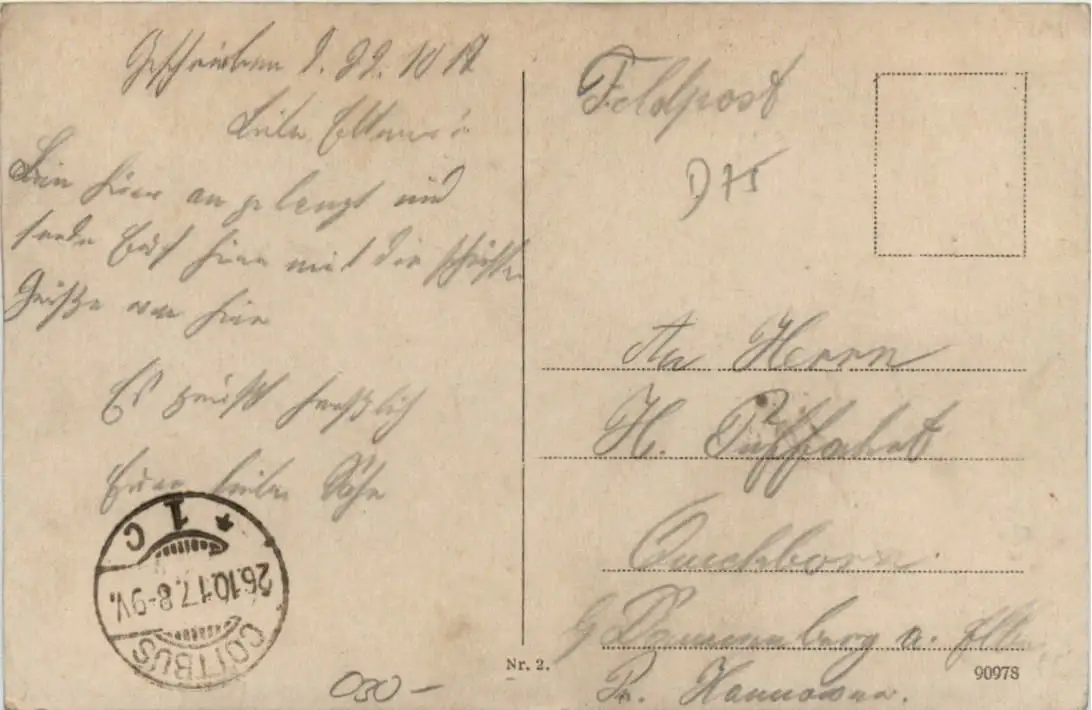 Geschrieben d. 22. 10 17
Liebe Eltern!
Bin hier angelangt und
sende Euch hier mit die schönsten
Grüße von hier
Es grüßt herzlich
Euer lieber Sohn
COTTBUS
26.10.17.8-9V.
* 1 c
030-
Feldpost
D 75
An Herrn
H.
Quickborn
Dannenberg a. Elbe
Pr. Hannover.
Nr. 2.
90978